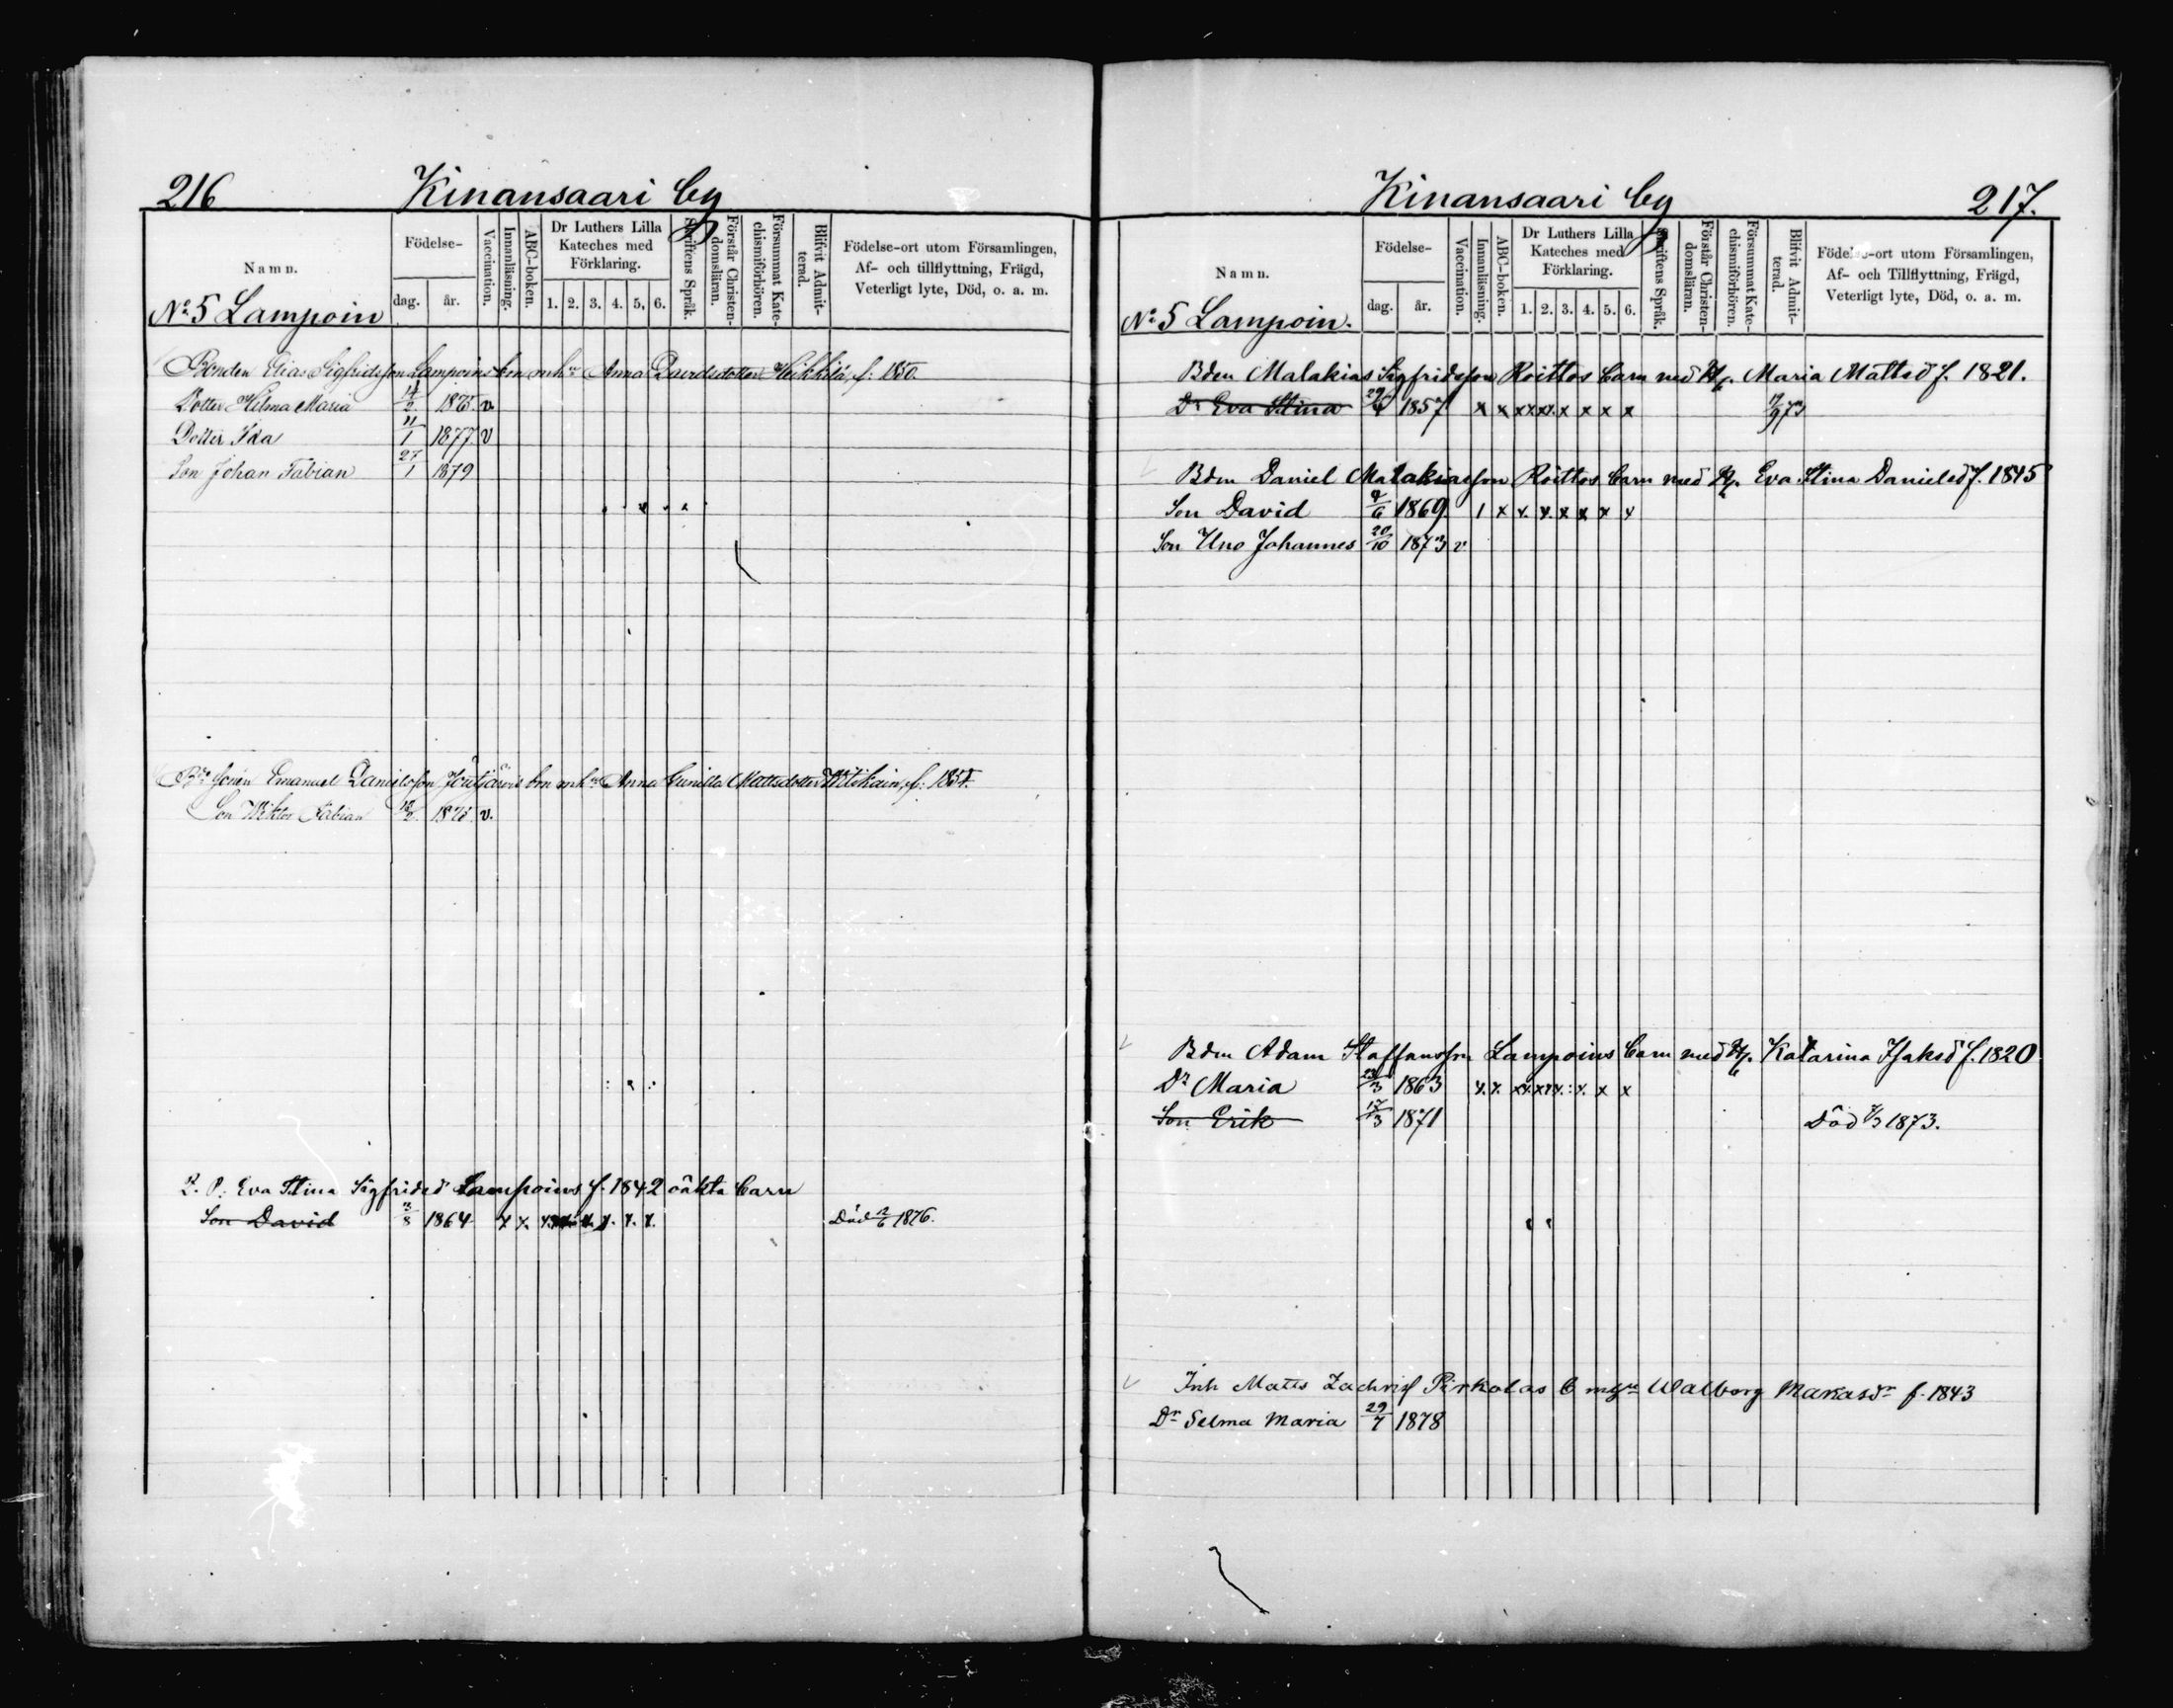 216
Kinansaari by
Namn.
Födelse-
dag.
år.
Vaccination.
Innanläsning.
ABC-boken.
Dr Luthers Lilla Kateches med Förklaring.
1. 2. 3. 4. 5. 6.
Skriftens Språk.
Förstår Christendomsläran.
Försummat Katechismiförhören.
Blifvit Admitterad.
Födelse-ort utom Församlingen,
Af- och tillflyttning, Frägd,
Veterligt lyte, Död, o. a. m.
No 5 Lampoin
Bonden Elias Sigfridsson Lampoins m. h. Anna Davidsdotter Heikkilä, f: 1850.
Dotter Hilma Maria 14/2 1875. v.
Dotter Ida 11/1 1877 v
Son Johan Fabian 27/1 1879
Emanuel Danielsson m. h. Anna Gunilla Mattsdotter
Son Wiktor Fabian v.
Eva Stina Sigfridsd Lampoins f. 1842 oäkta barn
Son David 3/8 1864 Död 2/6 1876.
Kinansaari by
217.
Namn.
Födelse-
dag.
år.
Vaccination.
Innanläsning.
ABC-boken.
Dr Luthers Lilla Kateches med Förklaring.
1. 2. 3. 4. 5. 6.
Skriftens Språk.
Förstår Christendomsläran.
Försummat Katechismiförhören.
Blifvit Admitterad.
Födelse-ort utom Församlingen,
Af- och Tillflyttning, Frägd,
Veterligt lyte, Död, o. a. m.
No 5 Lampoin.
Bden Malakias Sigfridsson Roittos barn med H. Maria Mattsd f. 1821.
Dr Eva Stina 29/4 1857 x x x x x x x x x
Bdn Daniel Malakiasson Roittos barn med H. Eva Stina Danielsd f. 1845
Son David 1869 1 x x x x x x x
Son Uno Johannes 20/10 1873 v
Bdn Adam Staffansson Lampoins barn med H. Katarina Isaksd f. 1820
Dr Maria 23/3 1863
Son Erik 17/3 1871 Död 7/3 1873.
Inh Matts Zachriss Pirkolas b m Walborg f. 1843
Dr Selma Maria 29/7 1878